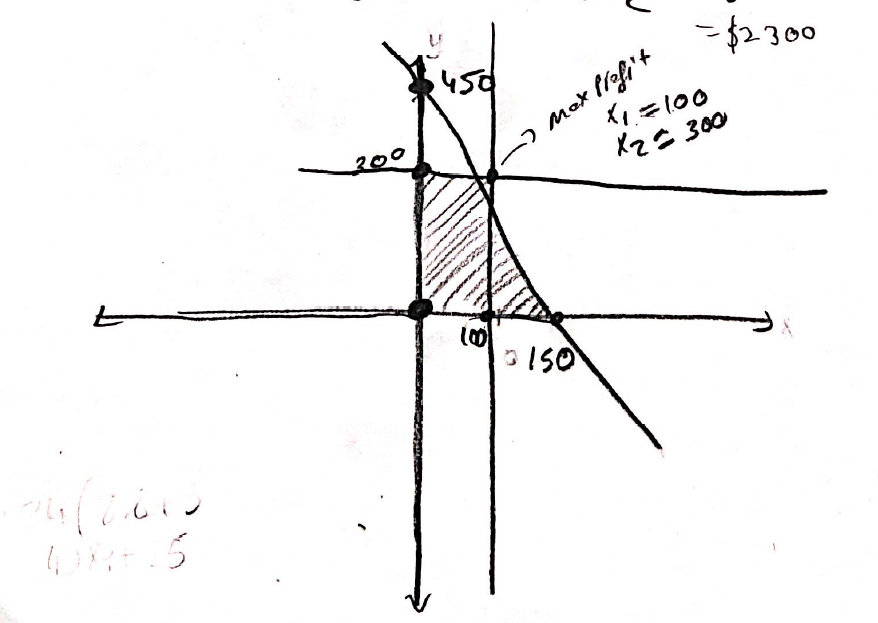 = $2300
y
450
max profit
x₁ = 100
x₂ = 300
200
x
100
150